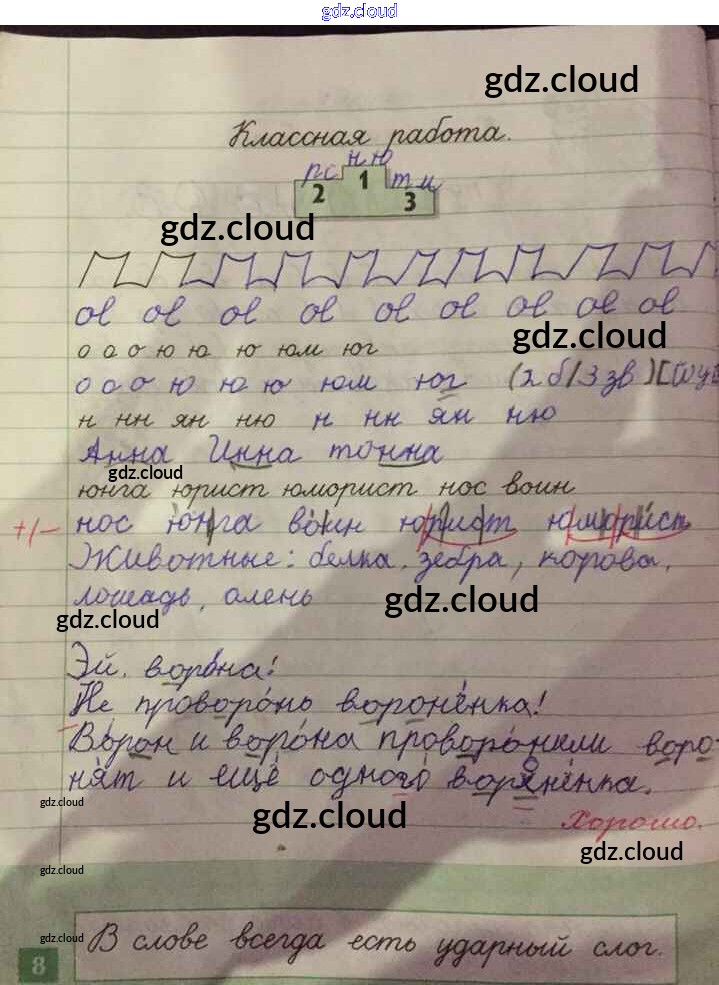 gdz.cloud
gdz.cloud
Классная работа.
рс ню тм
2 1 3
gdz.cloud
ое ое ое ое ое ое ое ое ое
gdz.cloud
о о о ю ю ю юм юг
о о о ю ю ю юм юг (2 б/3 зв)
н нн ян ню н нн ян ню
Анна Инна тонна
gdz.cloud
юнга юрист юморист нос воин
+/- нос юнга воин юрист юморист
Животные: белка, зебра, корова,
лошадь, олень
gdz.cloud
gdz.cloud
Эй, ворона!
Не проворонь воронёнка!
Ворон и ворона проворонили воро-
нят и ещё одного воронёнка.
gdz.cloud
gdz.cloud
Хорошо.
gdz.cloud
gdz.cloud
gdz.cloud
В слове всегда есть ударный слог.
8